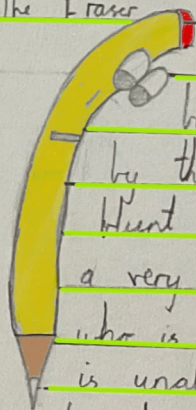 The Eraser
by th
blunt
a very
who is
is una